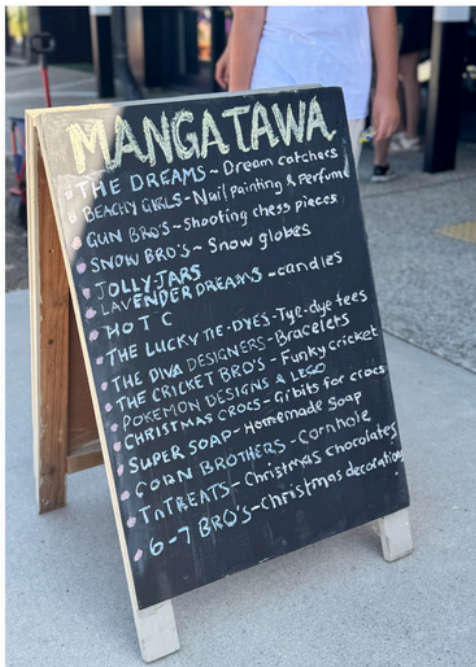 MANGATAWA
THE DREAMS ~ Dream catchers
BEACHY GIRLS - Nail painting & Perfume
GUN BRO'S ~ Shooting chess pieces
SNOW BRO'S ~ Snow globes
JOLLY JARS
LAVENDER DREAMS - candles
HOT C
THE LUCKY TIE-DYES - Tye-dye tees
THE DIVA DESIGNERS - Bracelets
THE CRICKET BRO'S - Funky cricket
POKEMON DESIGNS & LEGO
CHRISTMAS CROCS - Gibits for crocs
SUPER SOAP - Homemade Soap
CORN BROTHERS - Cornhole
TNTREATS - Christmas chocolates
6-7 BRO'S - Christmas decorations